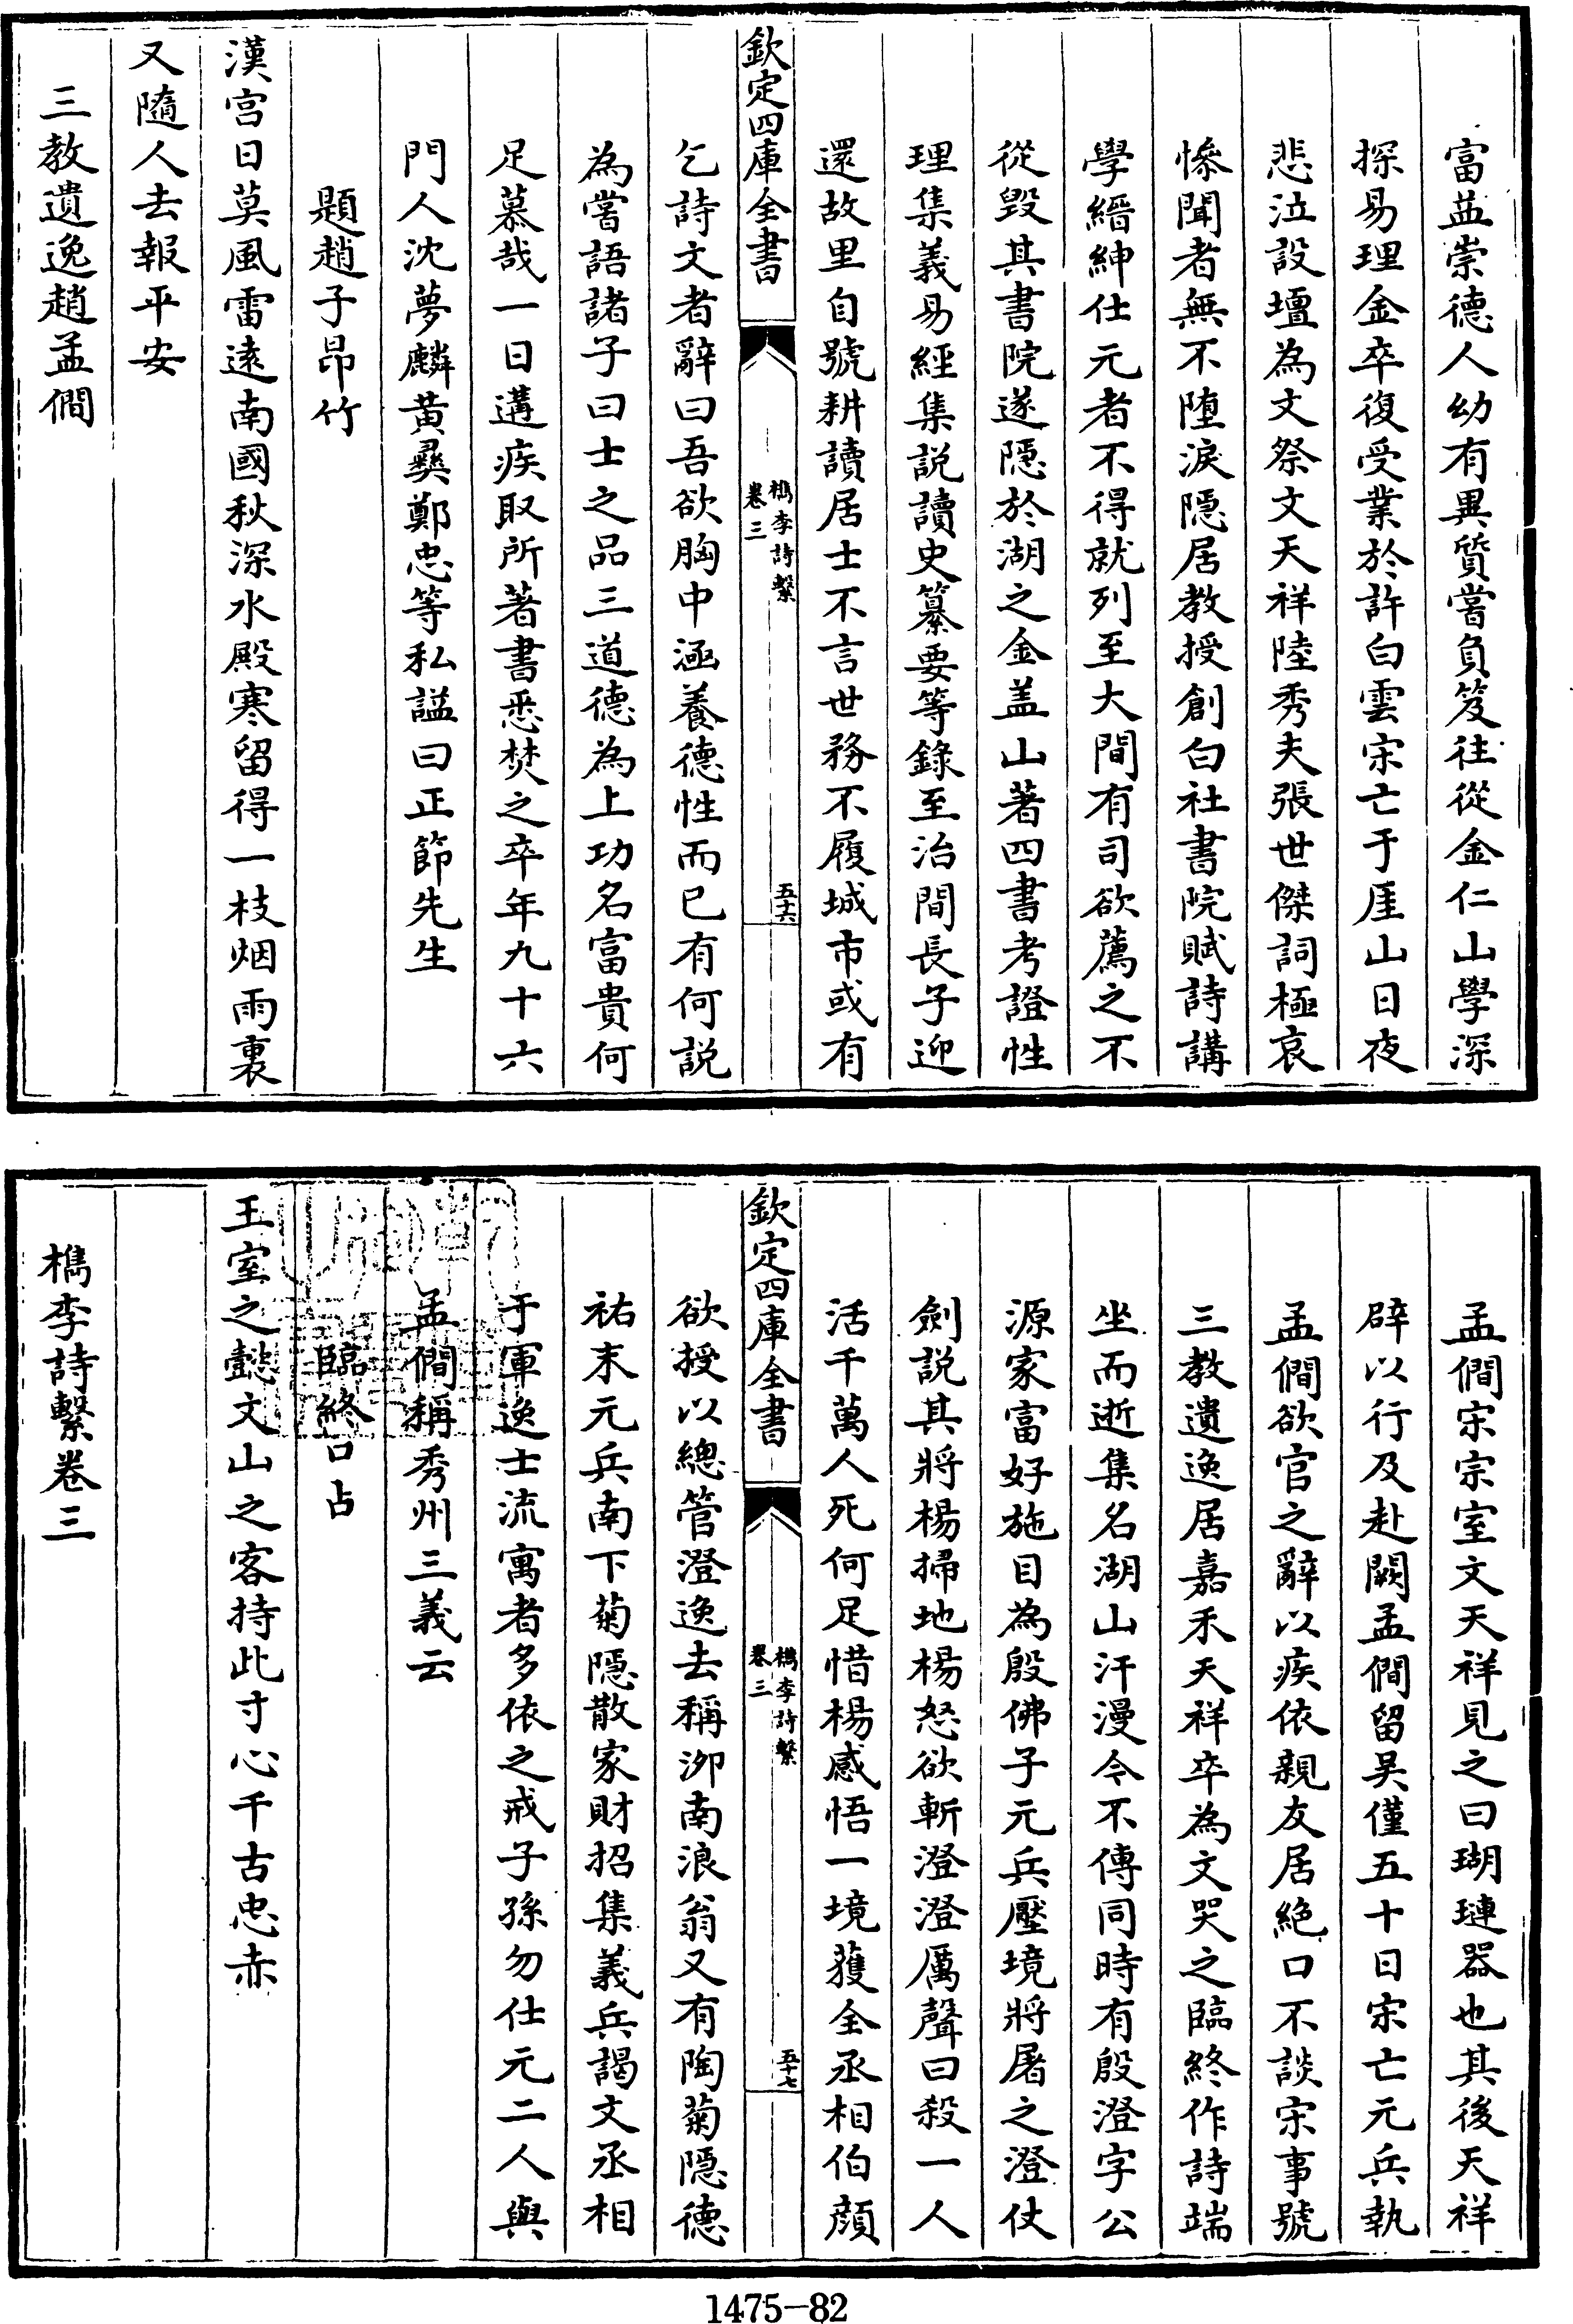 富益崇德人幼有異質嘗負笈往從金仁山學深
探易理金卒復受業於許白雲宋亡于厓山日夜
悲泣設壇為文祭文天祥陸秀夫張世傑詞極哀
慘聞者無不墮淚隱居教授創白社書院賦詩講
學縉紳仕元者不得就列至大間有司欲薦之不
從毀其書院遂隱於湖之金盖山著四書考證性
理集義易經集説讀史纂要等錄至治間長子迎
還故里自號耕讀居士不言世務不履城市或有
欽定四庫全書
檇李詩繫
卷三
五十六
乞詩文者辭曰吾欲胸中涵養德性而已有何説
為嘗語諸子曰士之品三道德為上功名富貴何
足慕哉一日遘疾取所著書悉焚之卒年九十六
門人沈夢麟黄彞鄭忠等私諡曰正節先生
題趙子昂竹
漢宫日莫風雷遠南國秋深水殿寒留得一枝烟雨裏
又隨人去報平安
三教遺逸趙孟僴
孟僴宋宗室文天祥見之曰瑚璉器也其後天祥
辟以行及赴闕孟僴留吴僅五十日宋亡元兵執
孟僴欲官之辭以疾依親友居絶口不談宋事號
三教遺逸居嘉禾天祥卒為文哭之臨終作詩端
坐而逝集名湖山汗漫今不傳同時有殷澄字公
源家富好施目為殷佛子元兵壓境將屠之澄仗
劍説其將楊掃地楊怒欲斬澄澄厲聲曰殺一人
活千萬人死何足惜楊感悟一境獲全丞相伯顔
欽定四庫全書
檇李詩繫
卷三
五十七
欲授以總管澄逸去稱泖南浪翁又有陶菊隱德
祐末元兵南下菊隱散家財招集義兵謁文丞相
于軍逸士流寓者多依之戒子孫勿仕元二人與
孟僴稱秀州三義云
臨終口占
王室之懿文山之客持此寸心千古忠赤
檇李詩繫卷三
1475-82